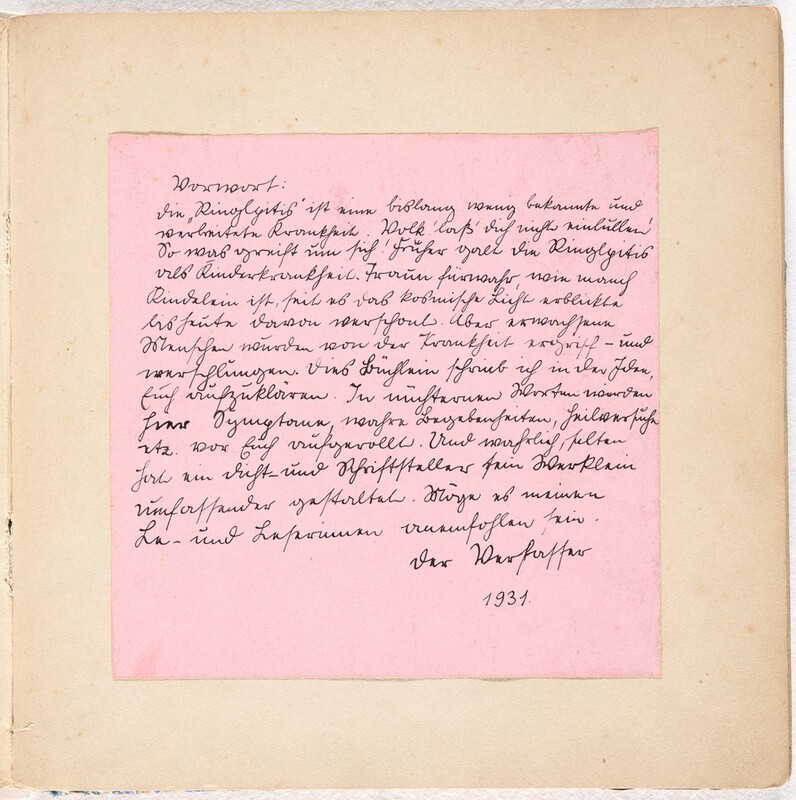 Vorwort:
die „Ringlpitis" ist eine bislang wenig bekannte und
verbreitete Krankheit. Volk laß' dich nicht einlullen!
So was greift um sich! Früher galt die Ringlpitis
als Kinderkrankheit. Traun fürwahr, wie manch
Kindelein ist, seit es das kosmische Licht erblickte
bis heute davon verschont. Aber erwachsene
Menschen wurden von der Krankheit ergriff- und
verschlungen. Dies Büchlein schrieb ich in der Idee,
Euch aufzuklären. In nüchternen Worten werden
hier Symptome, wahre Begebenheiten, Heilversuche
etz. vor Euch aufgerollt. Und wahrlich, selten
hat ein Dicht- und Schriftsteller sein Werklein
umfassender gestaltet. Möge es meinen
Le- und Leserinnen anempfohlen sein.
der Verfasser
1931.